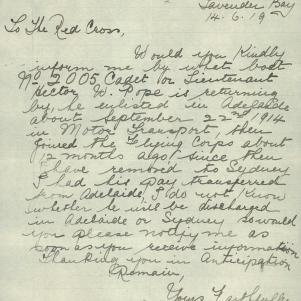 Lavender Bay
14.6.19
To The Red Cross,
Would you Kindly
inform me by what boat
No 2005 Cadet or Lieutenant
Hector W. Pope is returning
by, he enlisted in Adelaide
about September 22nd, 1914
in Motor Transport, then
joined the Flying Corps about
12 months ago, since then
I have removed to Sydney
I had his pay transferred
from Adelaide, I do not know
whether he will be discharged
in Adelaide or Sydney so would
you please notify me as
soon as you receive information
Thanking you in Anticipation
Remain,
Yours Faithfully